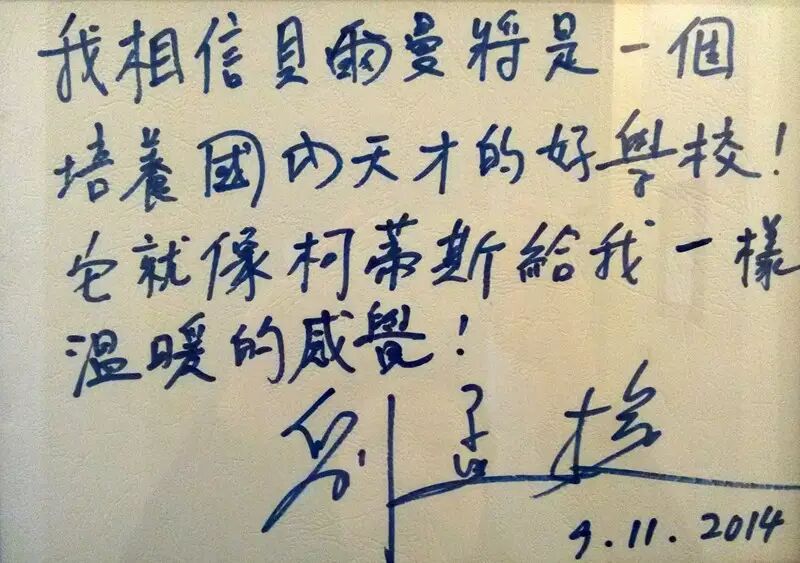 我相信貝爾曼將是一個
培養國內天才的好學校!
它就像柯蒂斯給我一樣
溫暖的感覺!
劉孟捷
9.11.2014